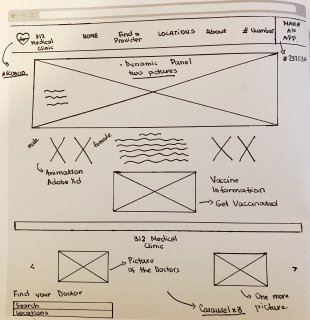 312 Medical Clinic
HOME
Find a Provider
LOCATIONS
About
# Number
MAKE AN APP.
• Dynamic Panel
two pictures
male
female
Animation
Adobe Xd
Vaccine
Information
Get Vaccinated
312 Medical
Clinic
Picture
of the Doctors
Find your Doctor
Search
Locations
Carousel x3
One more
picture